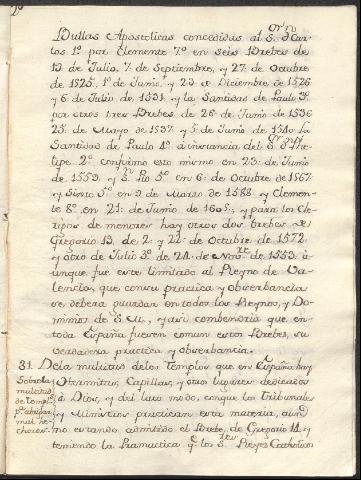 Bullas Apostolicas concedidas al S.or D.n Car
los 1º por Clemente 7º en seis Brebes de
13 de Julio, 7 de Septiembre, y 27 de Octubre
de 1525, 1º de Junio, y 23 de Diciembre de 1526
y 6 de Julio de 1531 y la Santidas de Paulo 3º
por otros tres Brebes de 26 de Junio de 1536
25 de Mayo de 1537 y 5 de Junio de 1540 La
Santidas de Paulo 4º à instancia del S.or D.n Phe
lipe 2º confirmo esto mismo en 23 de Junio
de 1559, y S.n Pio 5º en 6 de Octubre de 1567
y Sixto 5º en 9 de Marzo de 1588 y Clemen
te 8º en 21 de Junio de 1605, y para los Cle
rigos de menores hay otros dos brebes de
Gregorio 13 de 2 y 22 de Octubre de 1572
y otro de Julio 3º de 24 de Nov.re de 1553 à
unque fue este limitado al Reyno de Va
lencia, que con su practica y observancia
se debera guardar en todos los Reynos, y Do
minios de S.M., y asi combendria que en
toda España fuesen comun estos Brebes, su
verdadera practica y observancia.
31. De la multitud de los Templos que en España hay
Sobre la
multitud
de templ.s
p.a abrigar
mal he
chores.
y Hermitas, Capillas, y otros lugares dedicados
à Dios, y del lato modo, con que los Tribunales
y Ministros practican esta materia, aun
no estando admitido el Brebe de Gregorio 14 y
teniendo la Pramactica q.e los S.res Reyes Catholicos